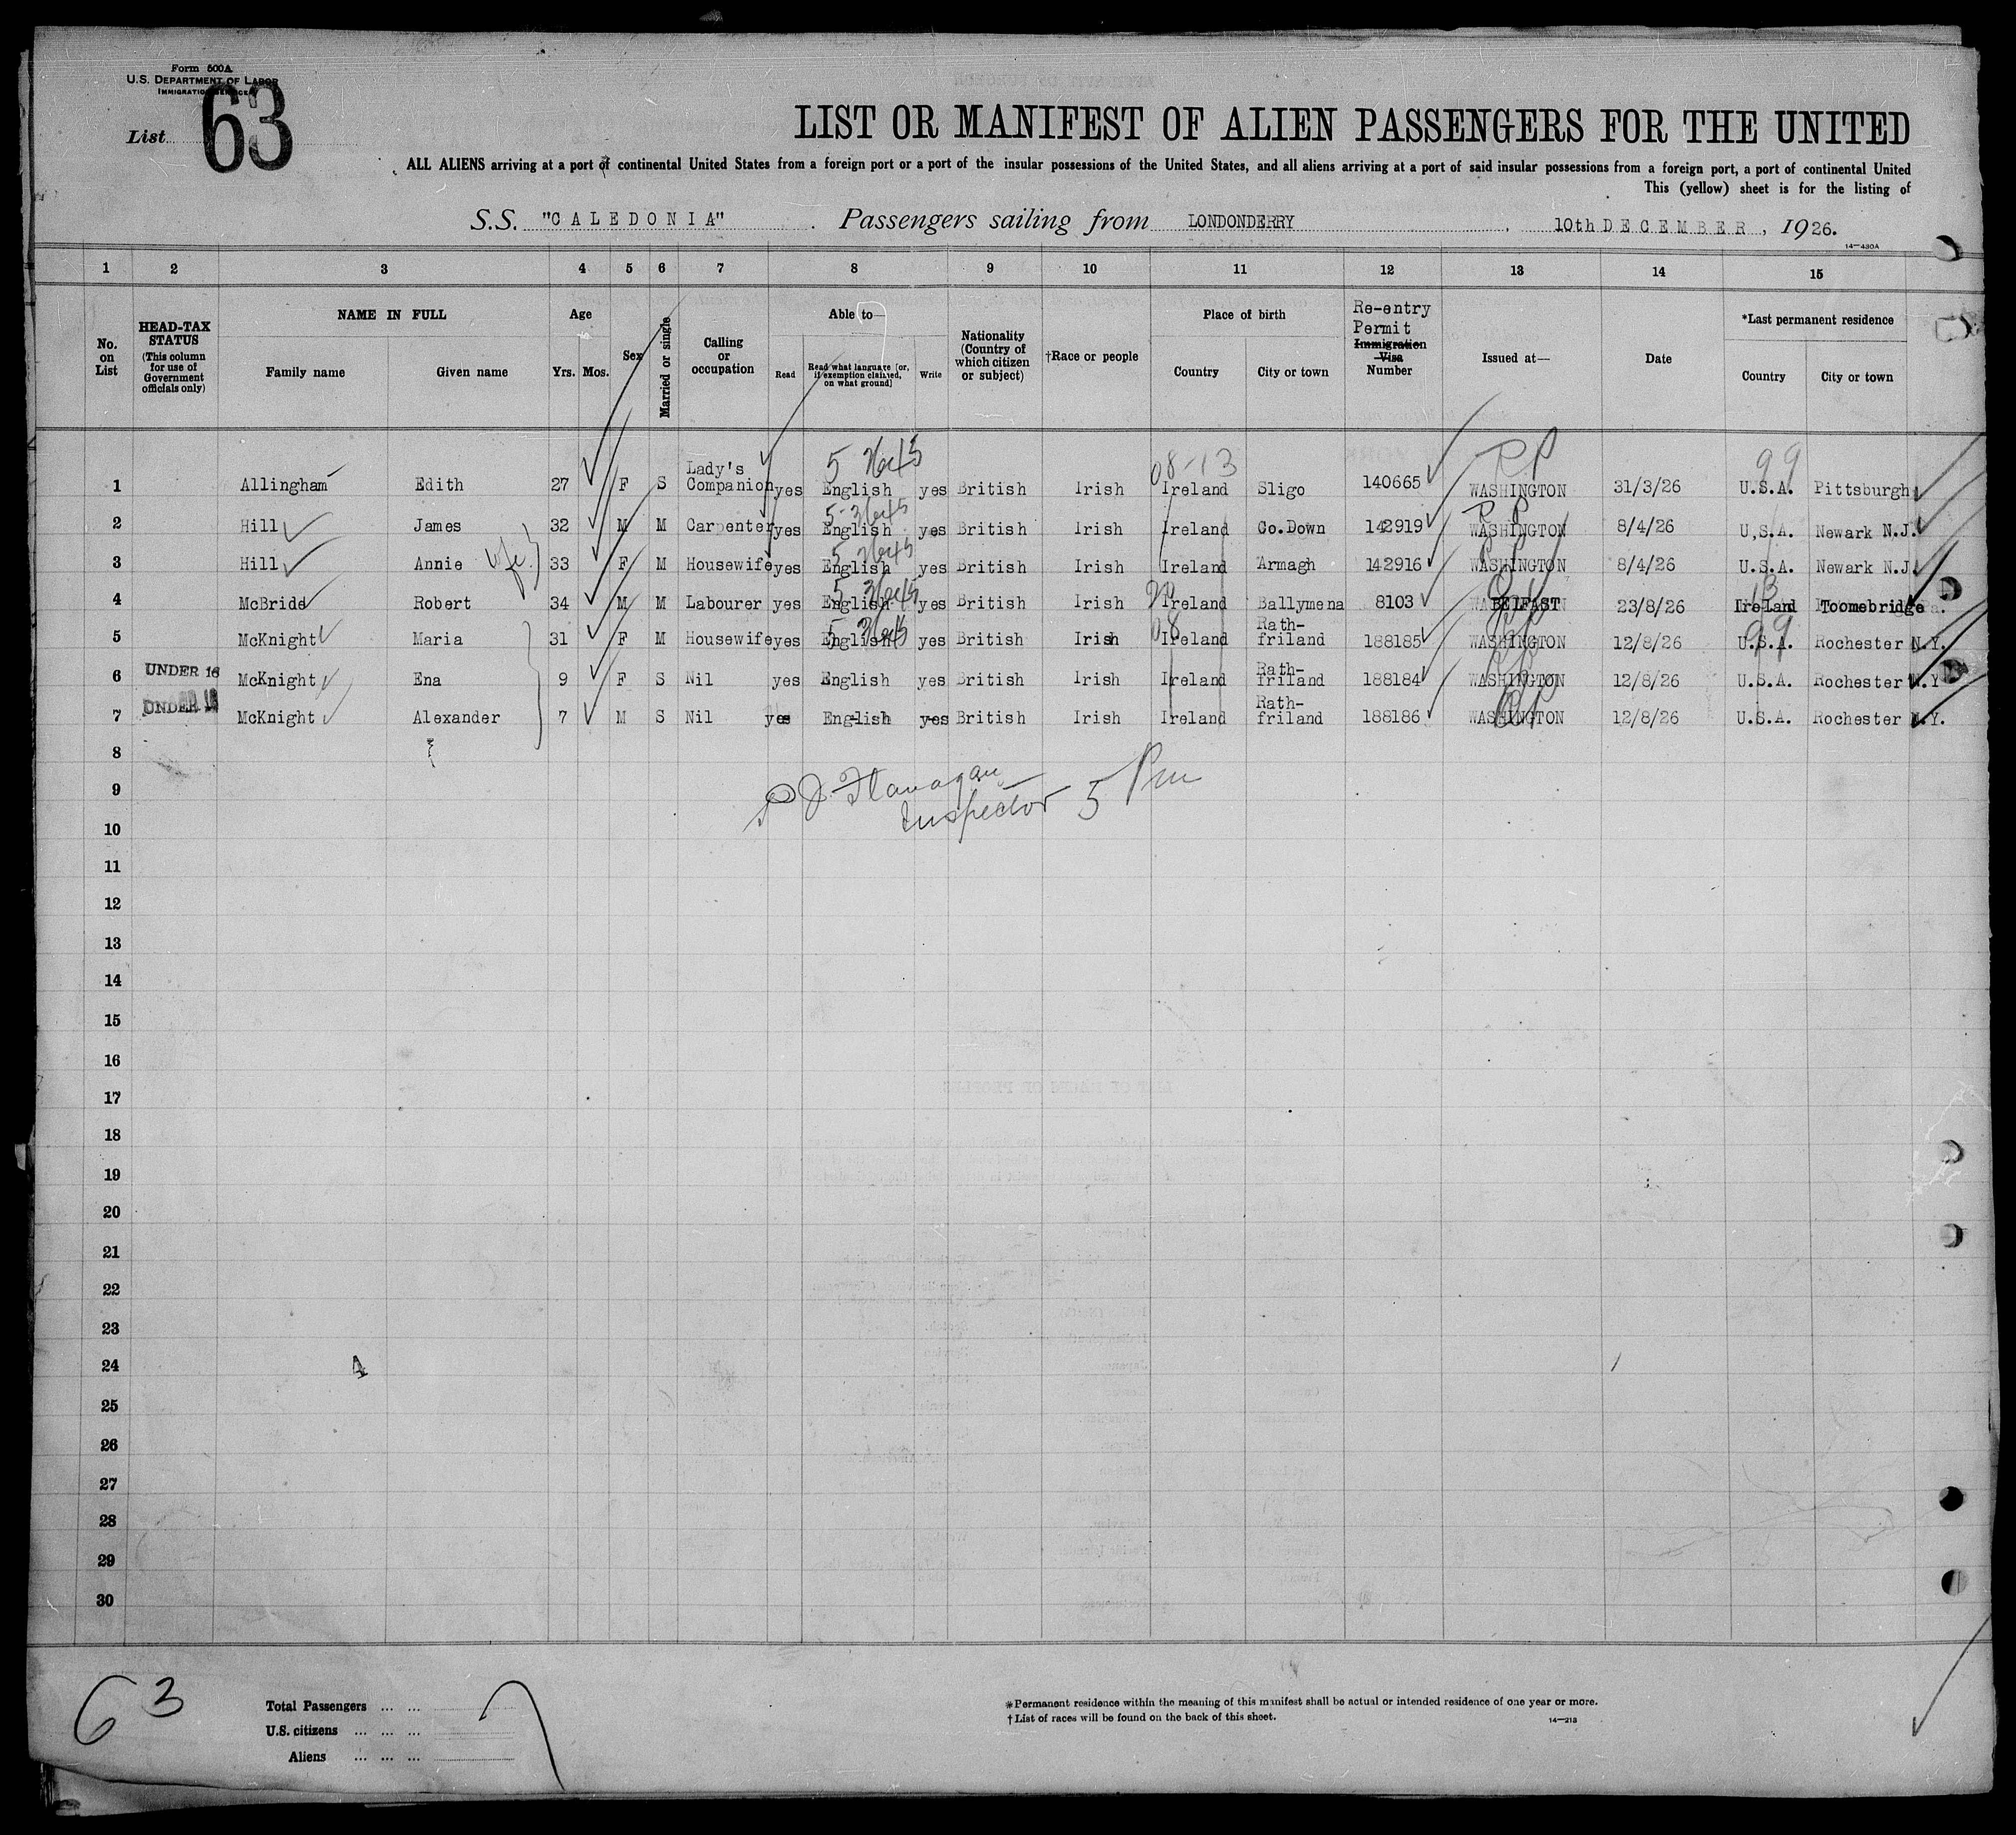 Form 500A
U.S. DEPARTMENT OF LABOR
IMMIGRATION SERVICE
List 63
LIST OR MANIFEST OF ALIEN PASSENGERS FOR THE UNITED
ALL ALIENS arriving at a port of continental United States from a foreign port or a port of the insular possessions of the United States, and all aliens arriving at a port of said insular possessions from a foreign port, a port of continental United
This (yellow) sheet is for the listing of
S.S. "CALEDONIA" . Passengers sailing from LONDONDERRY , 10th DECEMBER , 1926.
14—480A
1 2 3 4 5 6 7 8 9 10 11 12 13 14 15
No. on List
HEAD-TAX STATUS (This column for use of Government officials only)
NAME IN FULL
Family name Given name
Age
Yrs. Mos.
Sex
Married or single
Calling or occupation
Able to—
Read Read what language [or, if exemption claimed, on what ground] Write
Nationality (Country of which citizen or subject)
†Race or people
Place of birth
Country City or town
Re-entry Permit Immigration Visa Number
Issued at—
Date
*Last permanent residence
Country City or town
5 08-13 RP 99
1 Allingham Edith 27 F S Lady's Companion yes English yes British Irish Ireland Sligo 140665 WASHINGTON 31/3/26 U.S.A. Pittsburgh
2 Hill James 32 M M Carpenter yes English yes British Irish Ireland Co.Down 142919 WASHINGTON 8/4/26 U,S.A. Newark N.J.
3 Hill Annie wife 33 F M Housewife yes English yes British Irish Ireland Armagh 142916 WASHINGTON 8/4/26 U.S.A. Newark N.J.
4 McBride Robert 34 M M Labourer yes English yes British Irish Ireland Ballymena 8103 BELFAST 23/8/26 Ireland Toomebridge
5 McKnight Maria 31 F M Housewife yes English yes British Irish Ireland Rath-friland 188185 WASHINGTON 12/8/26 U.S.A. Rochester N.Y.
UNDER 16 6 McKnight Ena 9 F S Nil yes English yes British Irish Ireland Rath-friland 188184 WASHINGTON 12/8/26 U.S.A. Rochester N.Y
UNDER 16 7 McKnight Alexander 7 M S Nil yes English yes British Irish Ireland Rath-friland 188186 WASHINGTON 12/8/26 U.S.A. Rochester N.Y.
8
9 P J Flanagan
Inspector 5 Pm
10
11
12
13
14
15
16
17
18
19
20
21
22
23
24
25
26
27
28
29
30
63
Total Passengers ... ... 7
U.S. citizens ... ... ...
Aliens ... ... ...
*Permanent residence within the meaning of this manifest shall be actual or intended residence of one year or more.
†List of races will be found on the back of this sheet.
14—213